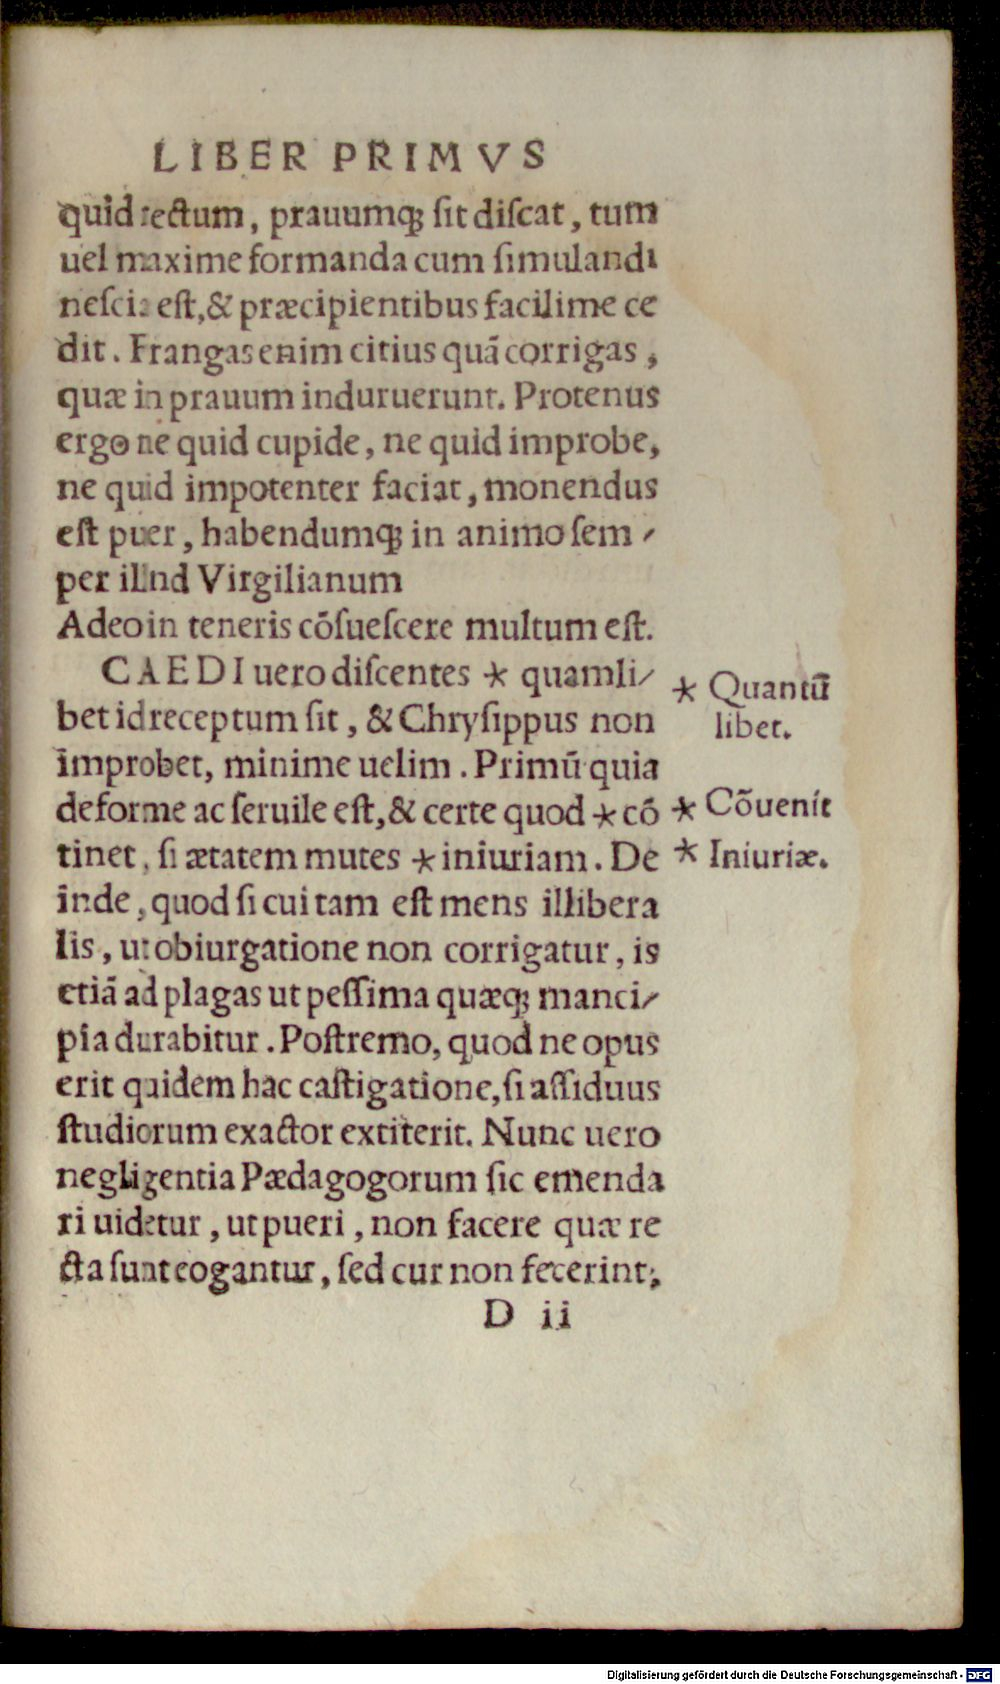 LIBER PRIMVS
quid rectum, prauumq́; sit discat, tum
uel maxime formanda cum simulandi
nescia est, & præcipientibus facilime ce
dit. Frangas enim citius quã corrigas,
quæ in prauum induruerunt. Protenus
ergo ne quid cupide, ne quid improbe,
ne quid impotenter faciat, monendus
est puer, habendumq́; in animo sem-
per illud Virgilianum
Adeo in teneris cõsuescere multum est.
CAEDI uero discentes * quamli-
bet id receptum sit, & Chrysippus non
improbet, minime uelim. Primũ quia
deforme ac seruile est, & certe quod * cõ
tinet, si ætatem mutes * iniuriam. De
inde, quod si cui tam est mens illibera
lis, ut obiurgatione non corrigatur, is
etiã ad plagas ut pessima quæq; manci-
pia durabitur. Postremo, quod ne opus
erit quidem hac castigatione, si assiduus
studiorum exactor extiterit. Nunc uero
negligentia Pædagogorum sic emenda
ri uidetur, ut pueri, non facere quæ re
cta sunt cogantur, sed cur non fecerint;
D ii
* Quantũ
libet.
* Cõuenit
* Iniuriæ.
Digitalisierung gefördert durch die Deutsche Forschungsgemeinschaft - DFG